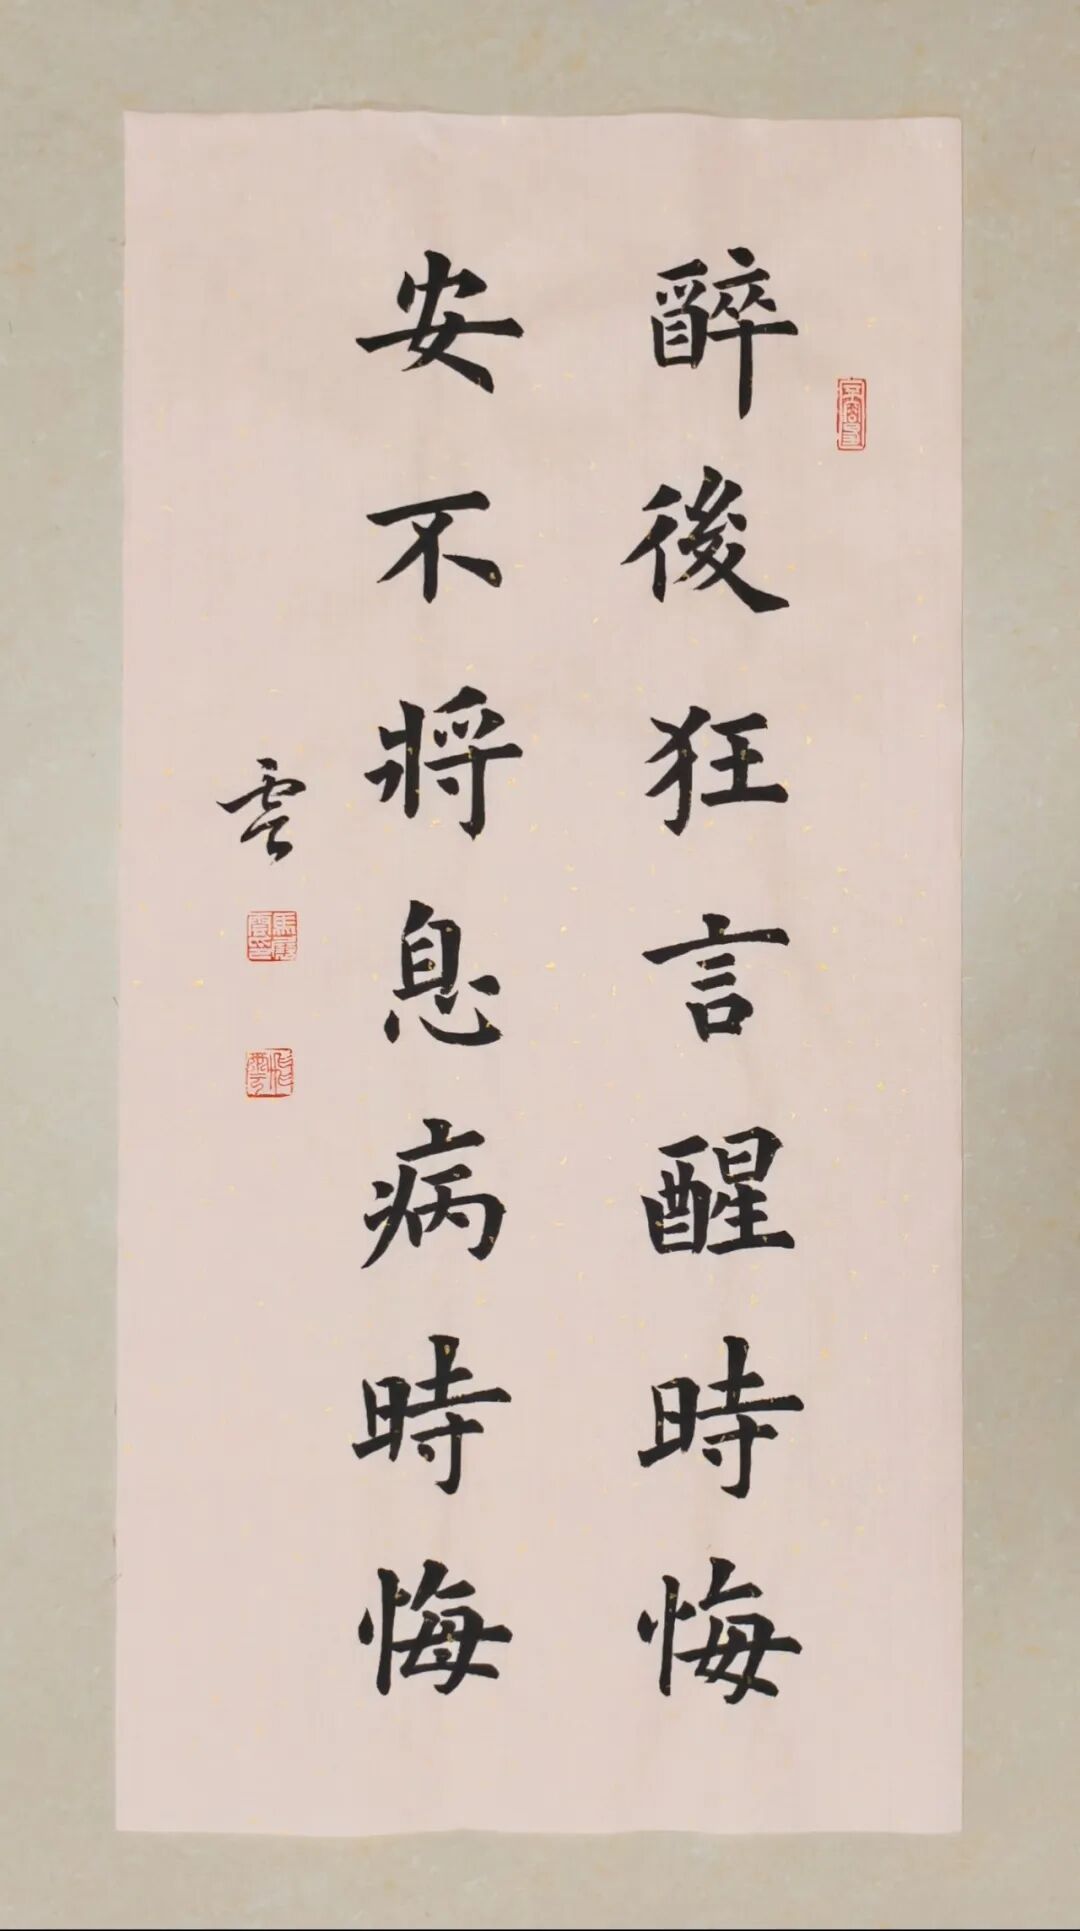 醉後狂言醒時悔
安不將息病時悔
雲